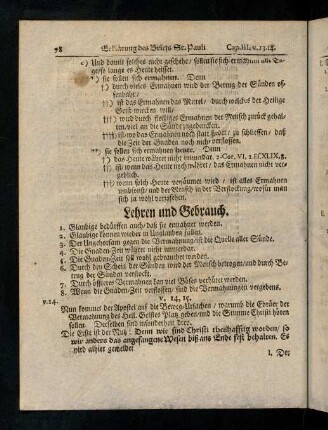 78 Erklärung des Briefs St. Pauli Cap. III. v. 13. 14.
c) Und damit solches nicht geschehe/ sollen sie sich ermahnen alle Ta-
ge/ so lange es Heute heisset.
*) sie sollen sich ermahnen. Denn
†) durch vieles Ermahnen wird der Betrug der Sünden of-
fenbahr/
††) ist das Ermahnen das Mittel/ durch welches der Heilige
Geist würcken will.
†††) wird durch fleissiges Ermahnen der Mensch zurück gehal-
ten/ viel an die Sünden
††††) ist, wo das Ermahnen noch statt findet/ zu schliessen/ daß
die Zeit der Gnaden noch nicht verflossen.
**) sie sollen sich ermahnen heute. Denn
†) das Heute währet nicht immerdar. 2. Cor. VI, 2. Es. XLIX, 8.
††) ist, wenn das Heute nicht währet/ das Ermahnen nicht ver-
geblich.
†††) wenn solch Heute versäumet wird/ ist alles Ermahnen
umbsonst/ und der Mensch in der Verstockung/ wofür man
sich ja wohl vorzusehen.
Lehren und Gebrauch.
1. Gläubige bedürffen auch/ daß sie ermahnet werden.
2. Gläubige können wieder in Unglauben fallen.
3. Der Ungehorsam gegen die Vermahnungen ist die Quelle aller Sünde.
4. Die Gnaden-Zeit währet nicht immerdar.
5. Die Gnaden-Zeit soll wohl gebrauchet werden.
6. Durch den Schein der Sünden wird der Mensch betrogen/ und durch Be-
trug der Sünden verstockt.
7. Durch öffteres Vermahnen kan viel Böses verhütet werden.
8. Wenn die Gnaden-Zeit verflossen/ sind die Vermahnungen vergebens.
v. 14, 15.
v. 14. Nun kommen der Apostel auf die Beweg-Ursachen/ warumb die Ebräer der
Vermahnung des Heil. Geistes Platz geben/ und die Stimme Christi hören
sollen. Dieselben sind unterschiedlich.
Die Erste ist der Nutz: Denn wir sind Christi theilhafftig worden/ so
wir anders das angefangene Wesen biß ans Ende fest behalten. Es
wird allhier gemeldet
1. Der